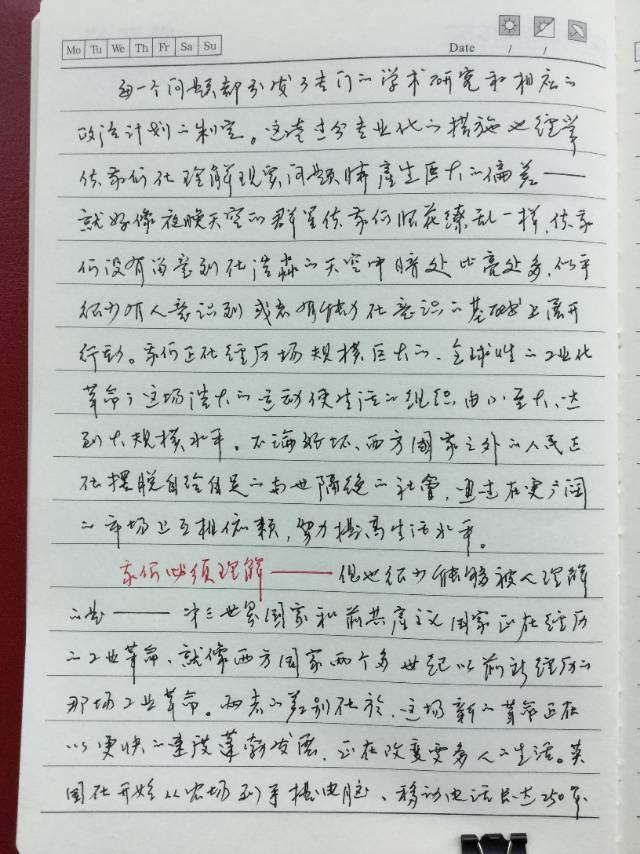 Mo Tu We Th Fr Sa Su
Date / /
每一个问题都引发了专门的学术研究和相应的
政治计划的制定。这些过分专业化的措施也经常
使我们在理解现实问题时產生巨大的偏差——
就好像夜晚天空的群星使我们眼花缭乱一样,使我
们没有留意到在浩淼的天空中暗处比亮处多,似乎
很少有人意识到或者有能力在意识的基础上展开
行动。我们正在经历场规模巨大的、全球性的工业化
革命;这场浩大的运动使生活的组织由小至大,达
到大规模水平。不論好坏,西方國家之外的人民正
在摆脱自给自足的与世隔绝的社會,通过在更广阔
的市场上互相依赖,努力提高生活水平。
我们必须理解——但也很少能够被人理解
的是——第三世界国家和前共產主义国家正在经历
的工业革命,就像西方国家两个多世纪以前所经历的
那场工业革命。两者的差别在於,这场新的革命正在
以更快的速度蓬勃发展,正在改变更多人的生活。英
国在开始从农场到手提电脑、移动电话只达250年